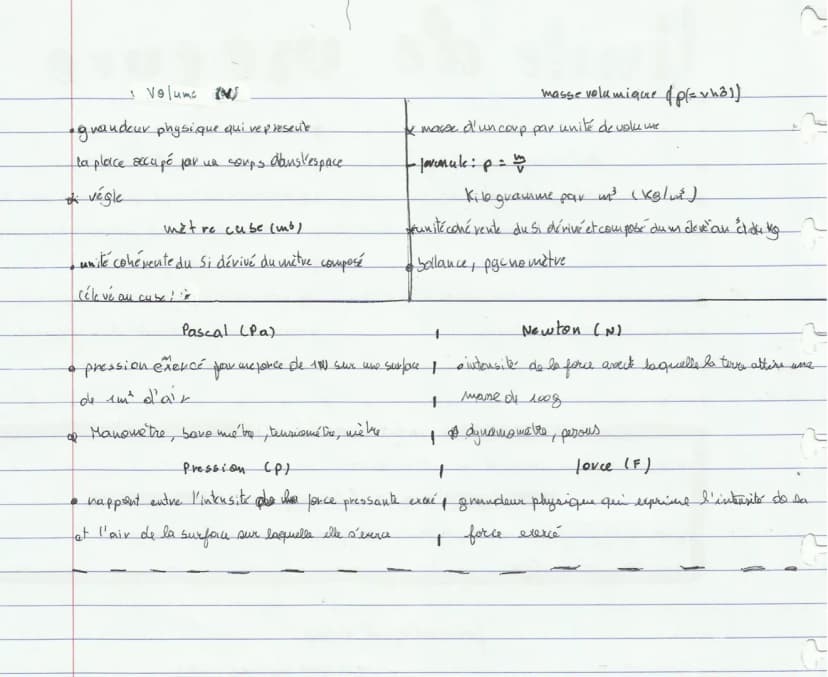 Volume (V)
• grandeur physique qui represente
la place occupé par un corps dans l'espace
• végle
mètre cube (m3)
• unité cohérente du Si dérivé du mètre composé
élevé au cube!
masse volumique (ρ(= vh31)
masse d'un corp par unité de volume
- formule: ρ = m/v
Kilogramme par m³ (Kg/m³)
unité cohérente du Si dérivé et composé du m élevé au et du kg
• ballance, pycnomètre
Pascal (Pa)
• pression exercé par une force de 1N sur une surface
de 1m² d'air
• Manomètre, baromètre, tensiomètre,
Newton (N)
• intensité de la force avect laquelle la terre attire une
masse de 100g
• dynamomètre,
Pression (P)
• rapport entre l'intensité force pressante
et l'air de la surface sur laquelle elle s'exerce
force (F)
grandeur physique qui exprime l'intensité de sa
force exercé